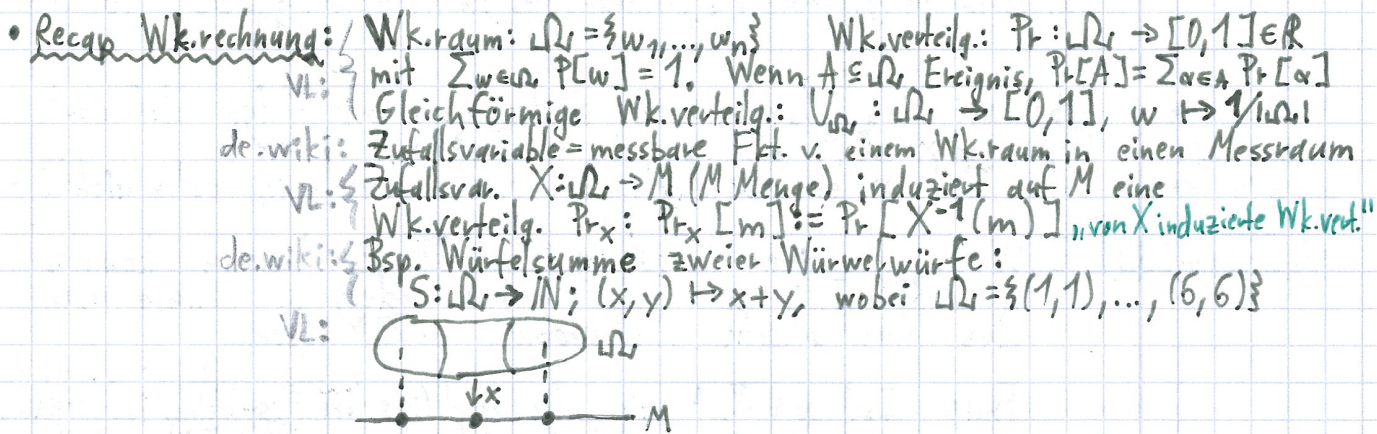 • Recap Wk.rechnung: Wk.raum: Ω = {w₁,..., wₙ} Wk.verteilg.: Pr : Ω → [0,1] ∈ ℝ
VL: mit Σ_{w∈Ω} P[w] = 1. Wenn A ⊆ Ω Ereignis, Pr[A] = Σ_{α∈A} Pr[α]
Gleichförmige Wk.verteilg.: U_Ω : Ω → [0,1], w ↦ 1/|Ω|
de.wiki: Zufallsvariable = messbare Fkt. v. einem Wk.raum in einen Messraum
VL: Zufallsvar. X: Ω → M (M Menge) induziert auf M eine
Wk.verteilg. Prₓ : Prₓ [m] := Pr [X⁻¹(m)] „von X induzierte Wk.vert."
de.wiki: Bsp. Würfelsumme zweier Würwelwürfe:
S: Ω → ℕ; (x,y) ↦ x+y, wobei Ω = {(1,1),..., (6,6)}
VL: Ω
↓x
M